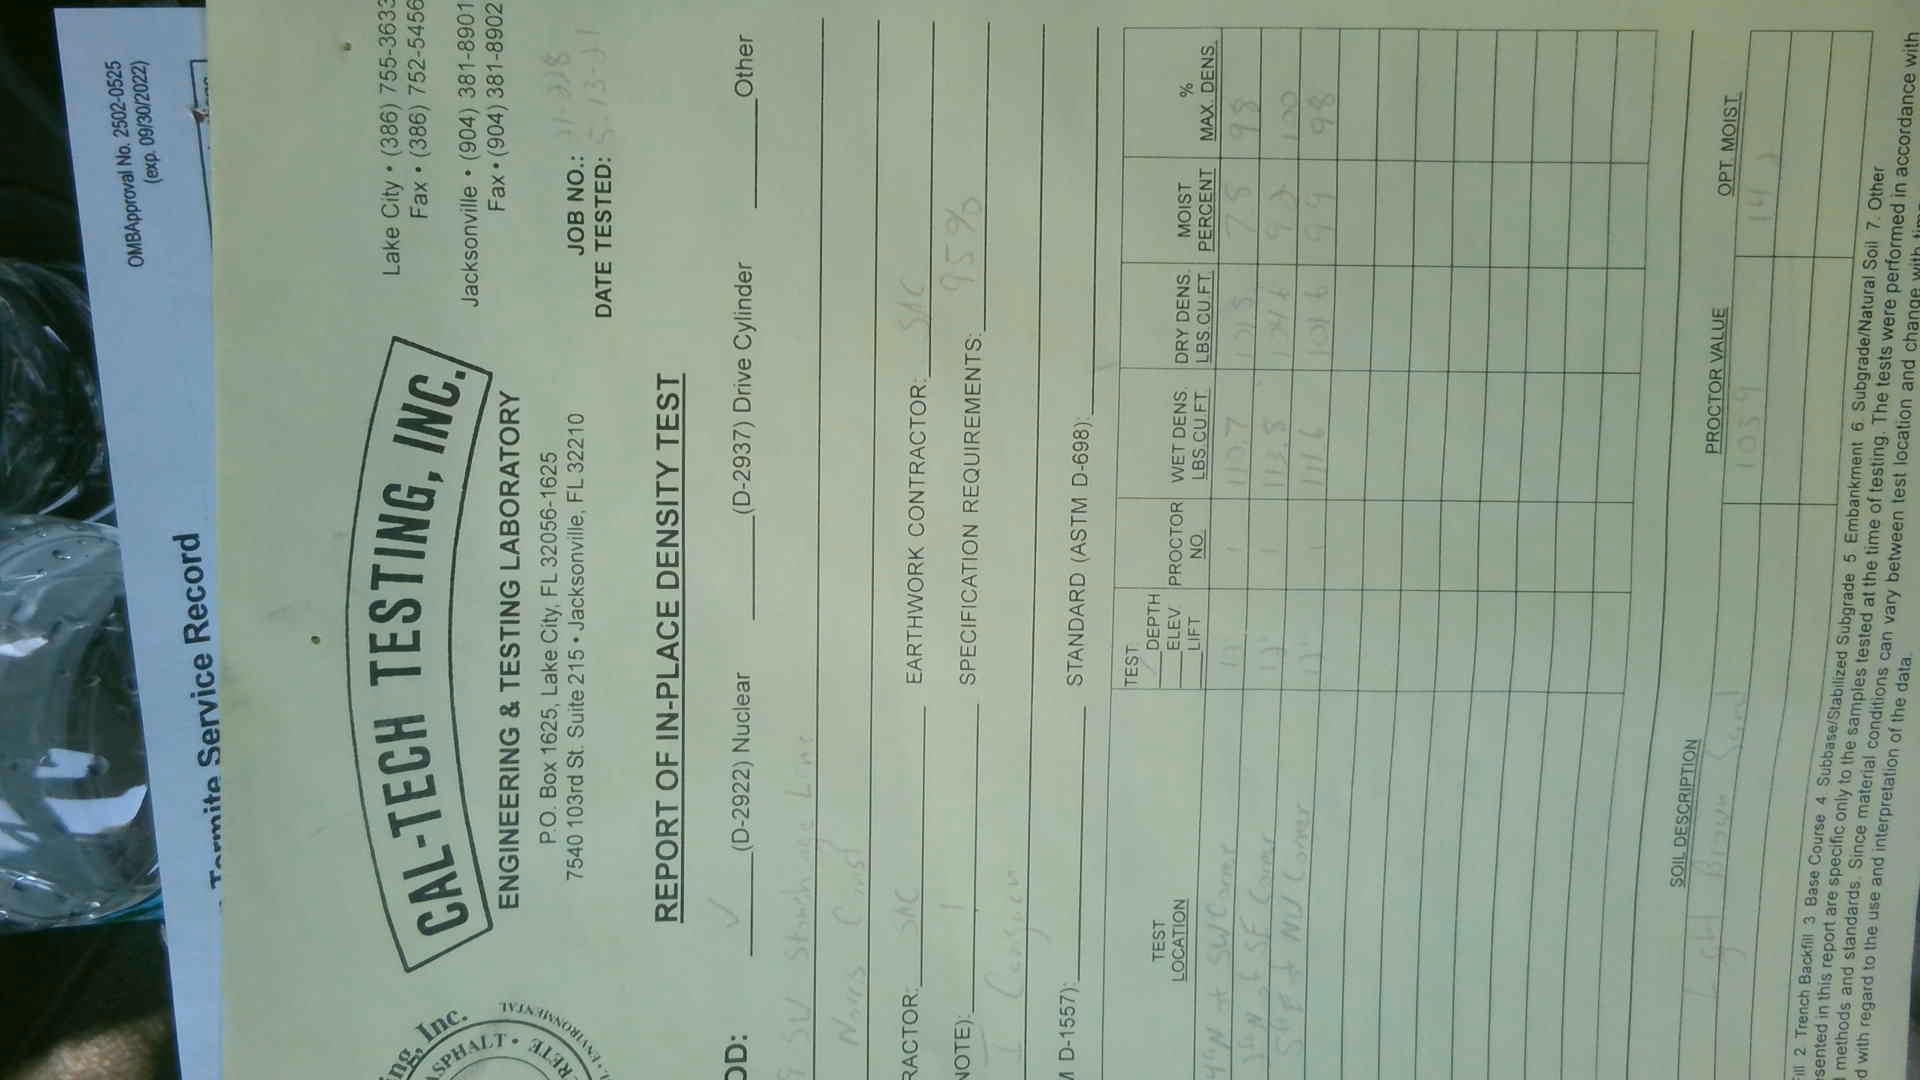 OMBApproval No. 2502-0525
(exp. 09/30/2022)
Termite Service Record
CAL-TECH TESTING, INC.
ENGINEERING & TESTING LABORATORY
P.O. Box 1625, Lake City, FL 32056-1625
7540 103rd St. Suite 215 • Jacksonville, FL 32210
Lake City • (386) 755-3633
Fax • (386) 752-5456
Jacksonville • (904) 381-8901
Fax • (904) 381-8902
ing, Inc.
ASPHALT •
ENVIRONMENTAL
JOB NO.: 21-228
DATE TESTED: 5-13-21
REPORT OF IN-PLACE DENSITY TEST
OD: ✓ (D-2922) Nuclear (D-2937) Drive Cylinder Other
SW
Const
RACTOR: SAC EARTHWORK CONTRACTOR: SAC
NOTE): 1 SPECIFICATION REQUIREMENTS: 95%
M D-1557): STANDARD (ASTM D-698):
TEST LOCATION TEST DEPTH ELEV LIFT PROCTOR NO. WET DENS. LBS.CU.FT. DRY DENS. LBS.CU.FT. MOIST PERCENT % MAX. DENS.
SW Corner 12" 1 110.7 7.8 98
SE Corner 12" 1 113.8 100
NW Corner 12" 1 111.6 101.6 9.9 98
SOIL DESCRIPTION PROCTOR VALUE OPT. MOIST.
Light Brown Sand 103.9
ill 2 Trench Backfill 3 Base Course 4 Subbase/Stabilized Subgrade 5 Embankment 6. Subgrade/Natural Soil 7. Other
sented in this report are specific only to the samples tested at the time of testing. The tests were performed in accordance with
methods and standards. Since material conditions can vary between test location and change with time
d with regard to the use and interpretation of the data.